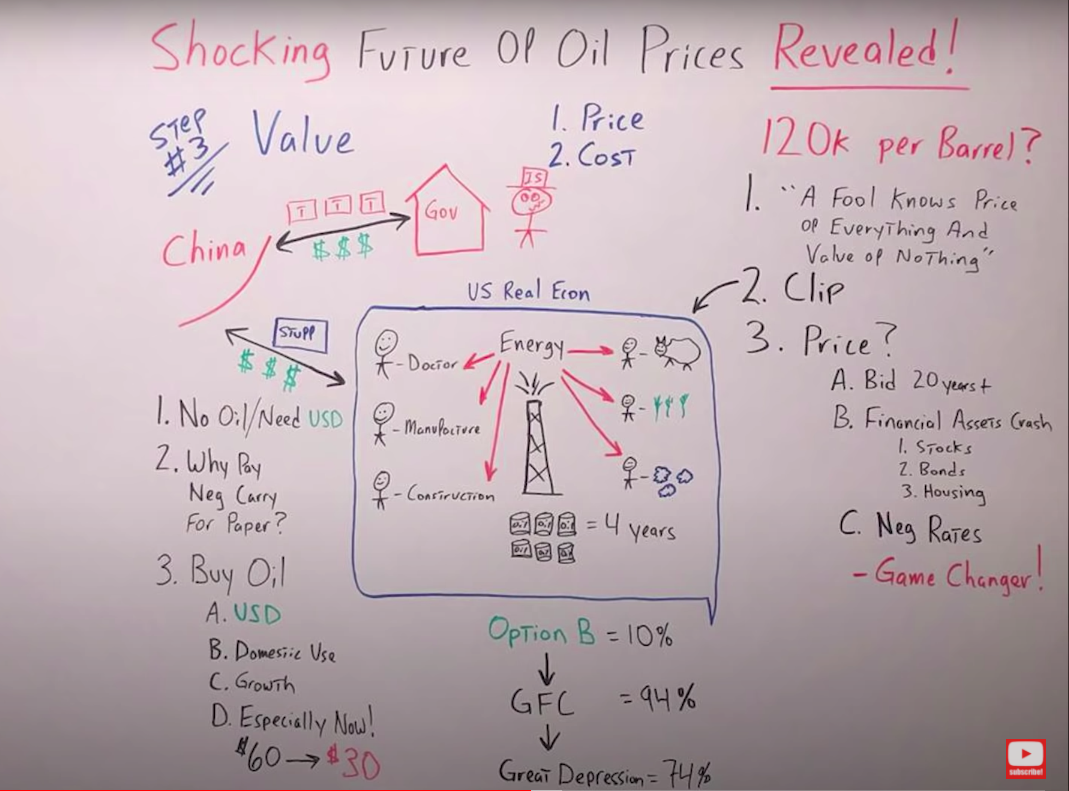 Shocking Future Of Oil Prices Revealed!
STEP
#3
Value
1. Price
2. Cost
120k per Barrel?
1. "A Fool Knows Price
Of Everything And
Value of Nothing"
2. Clip
3. Price?
A. Bid 20 years+
B. Financial Assets Crash
1. Stocks
2. Bonds
3. Housing
C. Neg Rates
- Game Changer!
China
T T T
$ $ $
Gov
STUFF
$ $ $
US Real Econ
Energy
- Doctor
- Manufacture
- Construction
Oil Oil Oil = 4 years
Oil Oil Oil
1. No Oil/Need USD
2. Why Pay
Neg Carry
For Paper?
3. Buy Oil
A. USD
B. Domestic Use
C. Growth
D. Especially Now!
$60 → $30
Option B = 10%
GFC = 94%
Great Depression = 74%
subscribe!